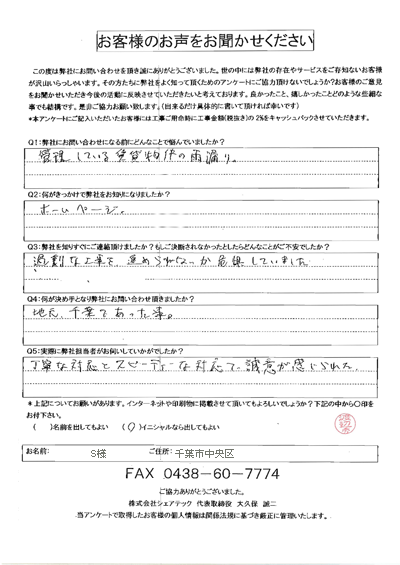 お客様のお声をお聞かせください
この度は弊社にお問い合わせを頂き誠にありがとうございました。世の中には弊社の存在やサービスをご存知ないお客様
が沢山いらっしゃいます。その方たちに弊社をよく知って頂くためのアンケートにご協力頂けないでしょうか？お客様のご意見
をお聞かせいただき今後の活動に反映させていただきたいと考えております。良かったこと、嬉しかったことどのような些細な
事でも結構です。是非ご協力お願い致します。（出来るだけ具体的に書いて頂ければ幸いです）
*本アンケートにご記入いただいたお客様には工事ご用命時に工事金額（税抜き）の2%をキャッシュバックさせていただきます。
Q1：弊社にお問い合わせになる前にどんなことで悩んでいましたか？
管理している賃貸物件の雨漏り。
Q2：何がきっかけで弊社をお知りになりましたか？
ホームページ。
Q3：弊社を知りすぐにご連絡頂けましたか？もしご決断されなかったとしたらどんなことがご不安でしたか？
過剰な工事を、進められないか危惧していました
Q4：何が決め手となり弊社にお問い合わせ頂きましたか？
地元、千葉であった事。
Q5：実際に弊社担当者がお伺いしていかがでしたか？
丁寧な対応とスピーディーな対応で、誠意が感じられた。
*上記についてお願いがあります。インターネットや印刷物に掲載させて頂いてもよろしいでしょうか？下記の中から〇印を
お付下さい。
（　）名前を出してもよい　（〇）イニシャルなら出してもよい
お名前:　S様　ご住所:　千葉市中央区
FAX 0438-60-7774
ご協力ありがとうございました。
株式会社シェアテック 代表取締役 大久保 誠二
当アンケートで取得したお客様の個人情報は関係法規に基づき厳正に管理いたします。